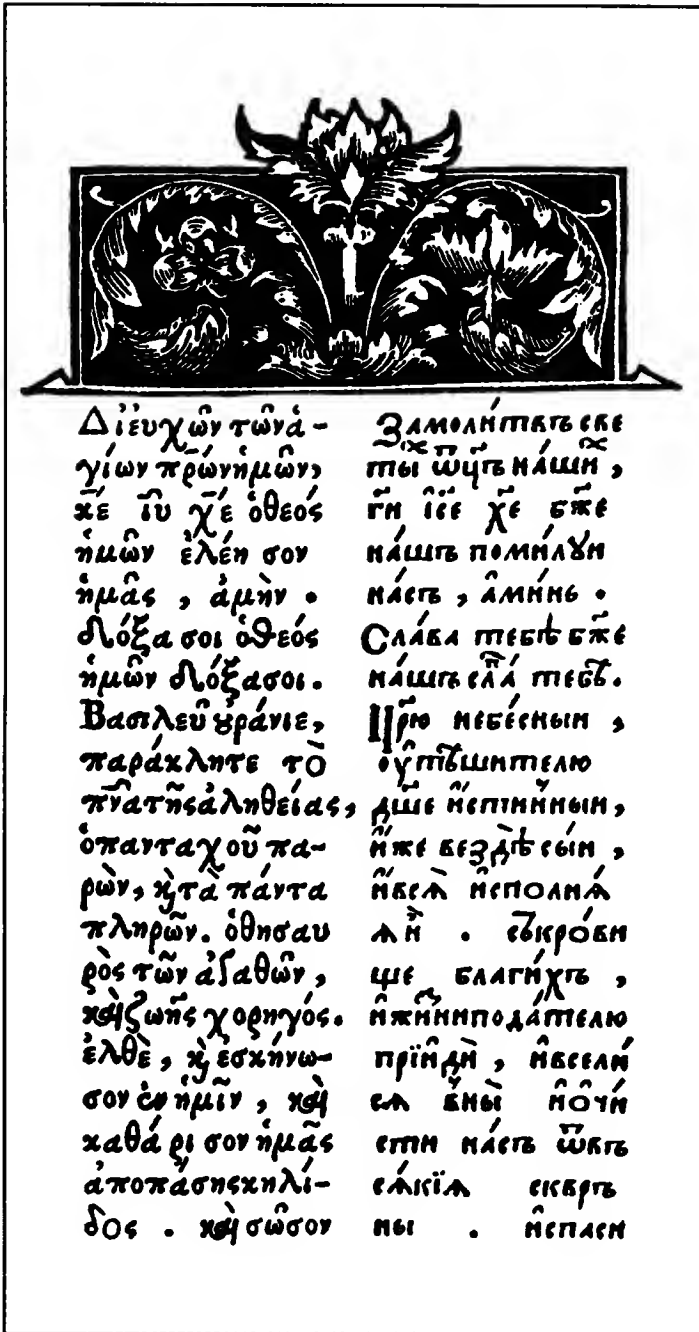 Διευχῶν τῶν ἁ-
γίων πρ̅ων ἡμῶν,
κ̅ε ι̅υ χ̅ε ὁ θεός
ἡμῶν ἐλέη σον
ἡμᾶς , ἀμὴν .
Δόξα σοι ὁ θεός
ἡμῶν δόξα σοι.
Βασιλεῦ ȣράνιε,
παράκλητε τὸ
πν̅α τῆς ἀληθείας,
ὁ πανταχοῦ πα-
ρὼν, κ̀ τὰ πάντα
πληρῶν. ὁ θησαυ
ρὸς τῶν ἀγαθῶν ,
καὶ ζωῆς χορηγός.
ἐλθὲ , κ̀ ἐσκήνω-
σον ἐν ἡμῖν , καὶ
καθάρι σον ἡμᾶς
ἀπο πάσης κηλί-
δος . καὶ σῶσον
Замоли́твъ све
ты́х ѿц҃ъ на́ших ,
гн҃ і҃се х҃е бж҃е
на́шъ поми́лꙋи
на́съ , а҆ми́нь .
Сла́ва тебѣ бж҃е
на́шъ сла́ тебѣ.
Цр҃ю небе́сныи ,
оу҆тѣшителю
дш҃е и҆стинныи ,
и҆же вездѣ сы́и ,
и҆всѧ̀ и҆сполнѧ́
ѧи . съкро́ви
ще благи́хъ ,
и҆жи́зни пода́телю
прїидѝ , и҆всели́
сѧ в̾ны̀ и҆ очи́
сти на́съ ѿвъ
сѧ́кїѧ сквръ
ны . и҆спаси